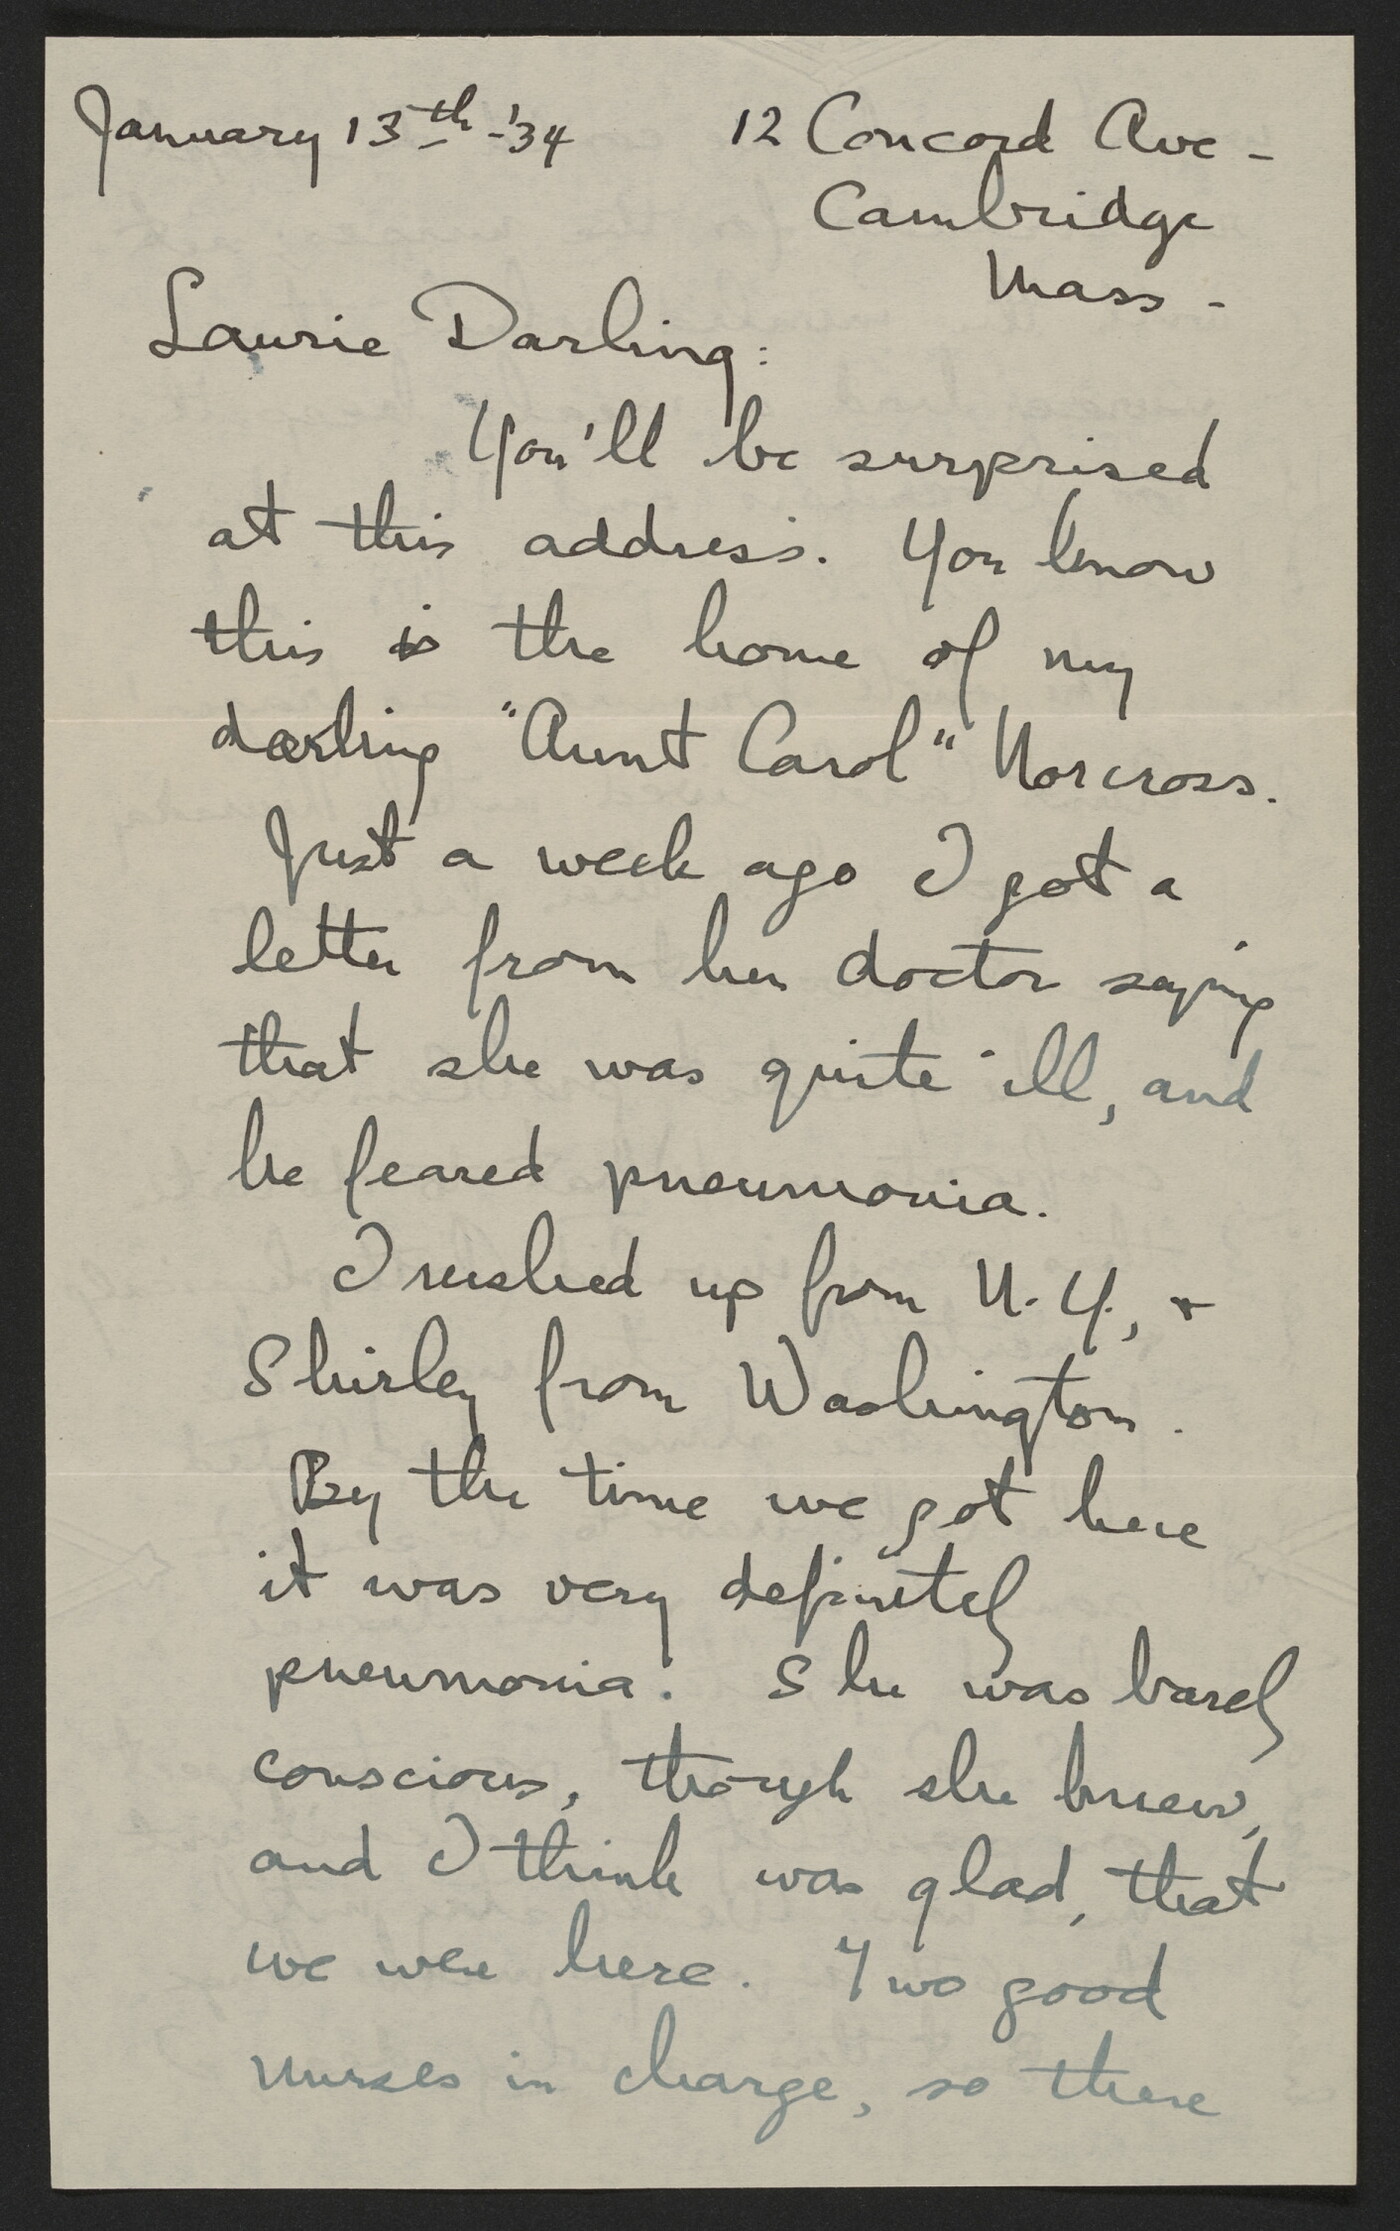 January 13th - '34
12 Concord Ave -
Cambridge
Mass -
Laurie Darling:
You'll be surprised
at this address. You know
this is the home of my
darling "Aunt Carol" Norcross.
Just a week ago I got a
letter from her doctor saying
that she was quite ill, and
he feared pneumonia.
I rushed up from N.Y., +
Shirley from Washington.
By the time we got here
it was very definitely
pneumonia. She was barely
conscious, though she knew,
and I think was glad, that
we were here. Two good
nurses in charge, so there